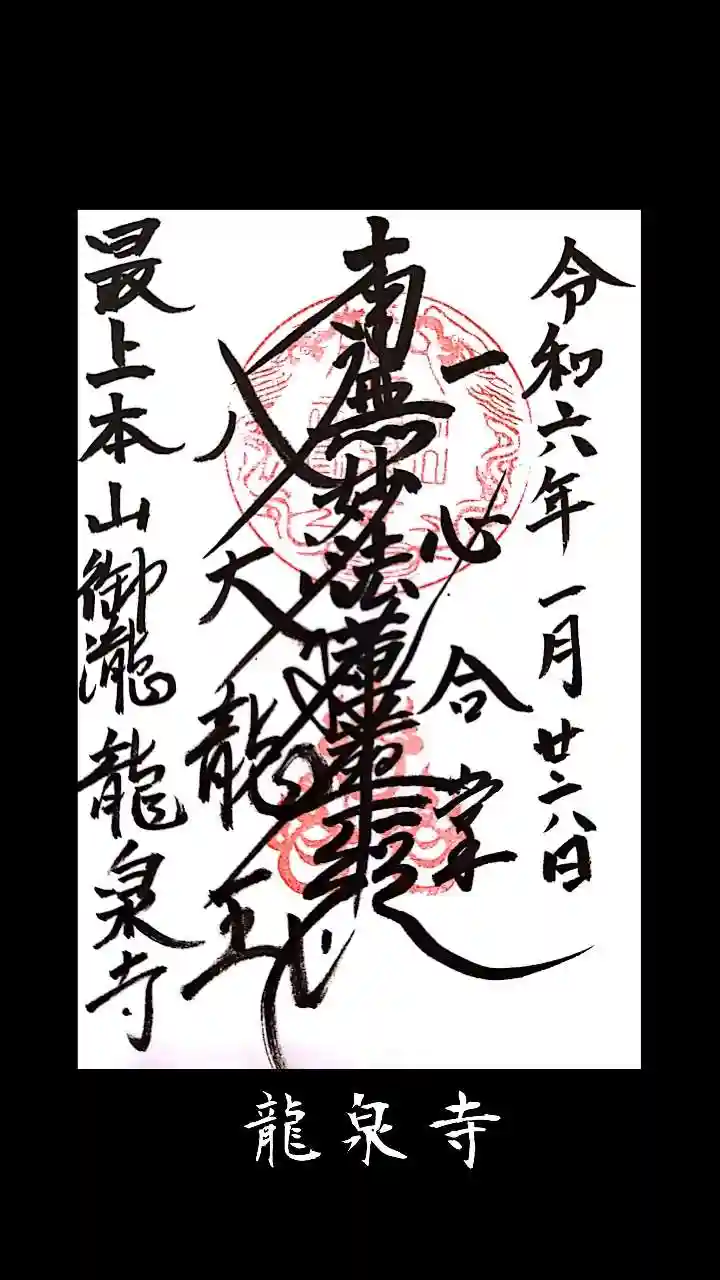 令和六年一月廿六日
一心合掌
南無妙法蓮華経
八大龍王
最上本山御瀧龍泉寺
龍泉寺